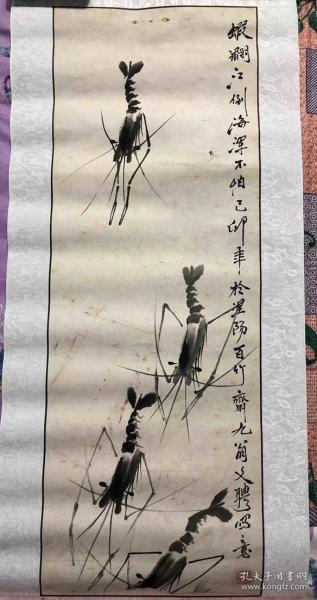 蝦翻江倒海渾不怕己卯年於濮陽百竹齋九翁文聘寫意
孔夫子旧书网
www.kongfz.com